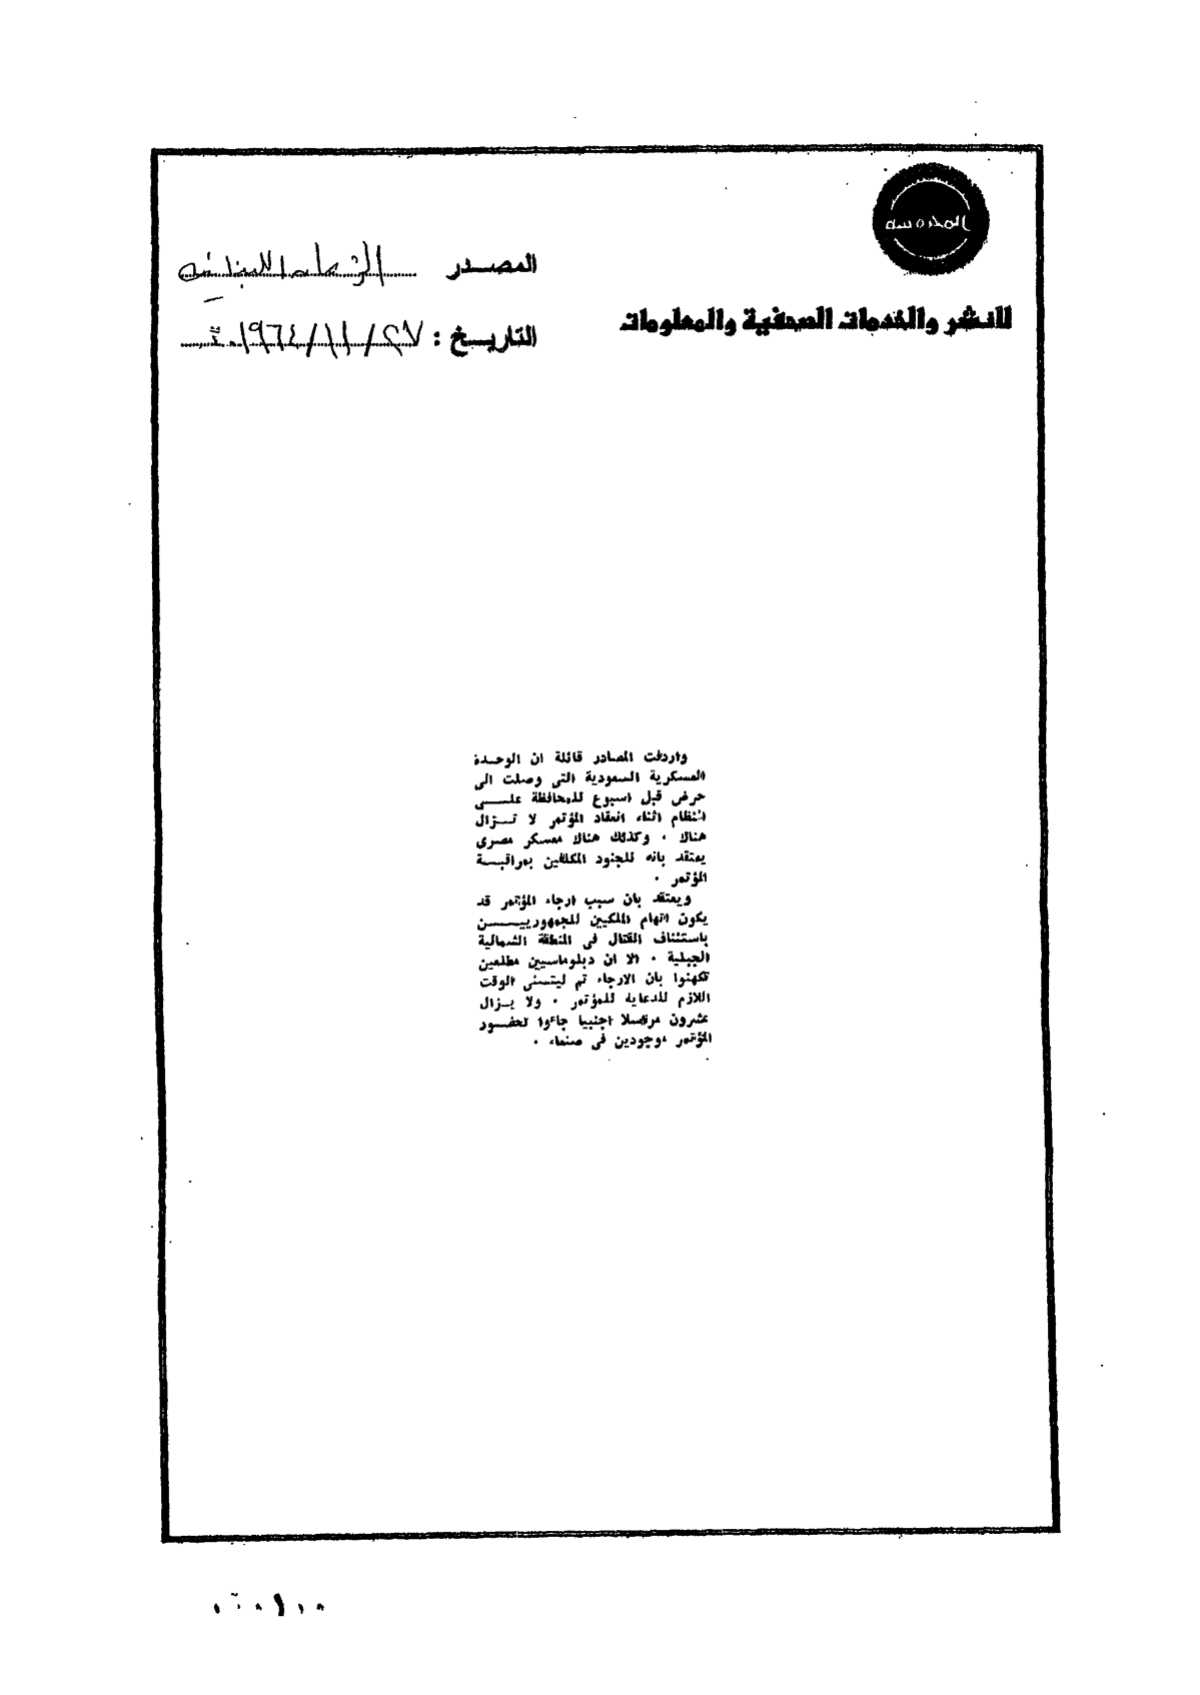 المحروسة
للنشر والخدمات الصحفية والمعلومات
المصدر
التاريخ : ٢٧ / ١١ / ١٩٦٤
واردفت المصادر قائلة ان الوحدة
العسكرية السعودية التي وصلت الى
حرض قبل اسبوع للمحافظة على
النظام اثناء انعقاد المؤتمر لا تزال
هناك . وكذلك هناك معسكر مصرى
يعتقد بانه للجنود المكلفين بمراقبة
المؤتمر .
ويعتقد بان سبب ارجاء المؤتمر قد
يكون اتهام الملكيين للجمهوريين
باستئناف القتال في المنطقة الشمالية
الجبلية . الا ان دبلوماسيين مطلعين
تكهنوا بان الارجاء تم ليتسنى الوقت
اللازم للدعاية للمؤتمر . ولا يزال
عشرون مراسلا اجنبيا جاءوا لحضور
المؤتمر موجودين في صنعاء .